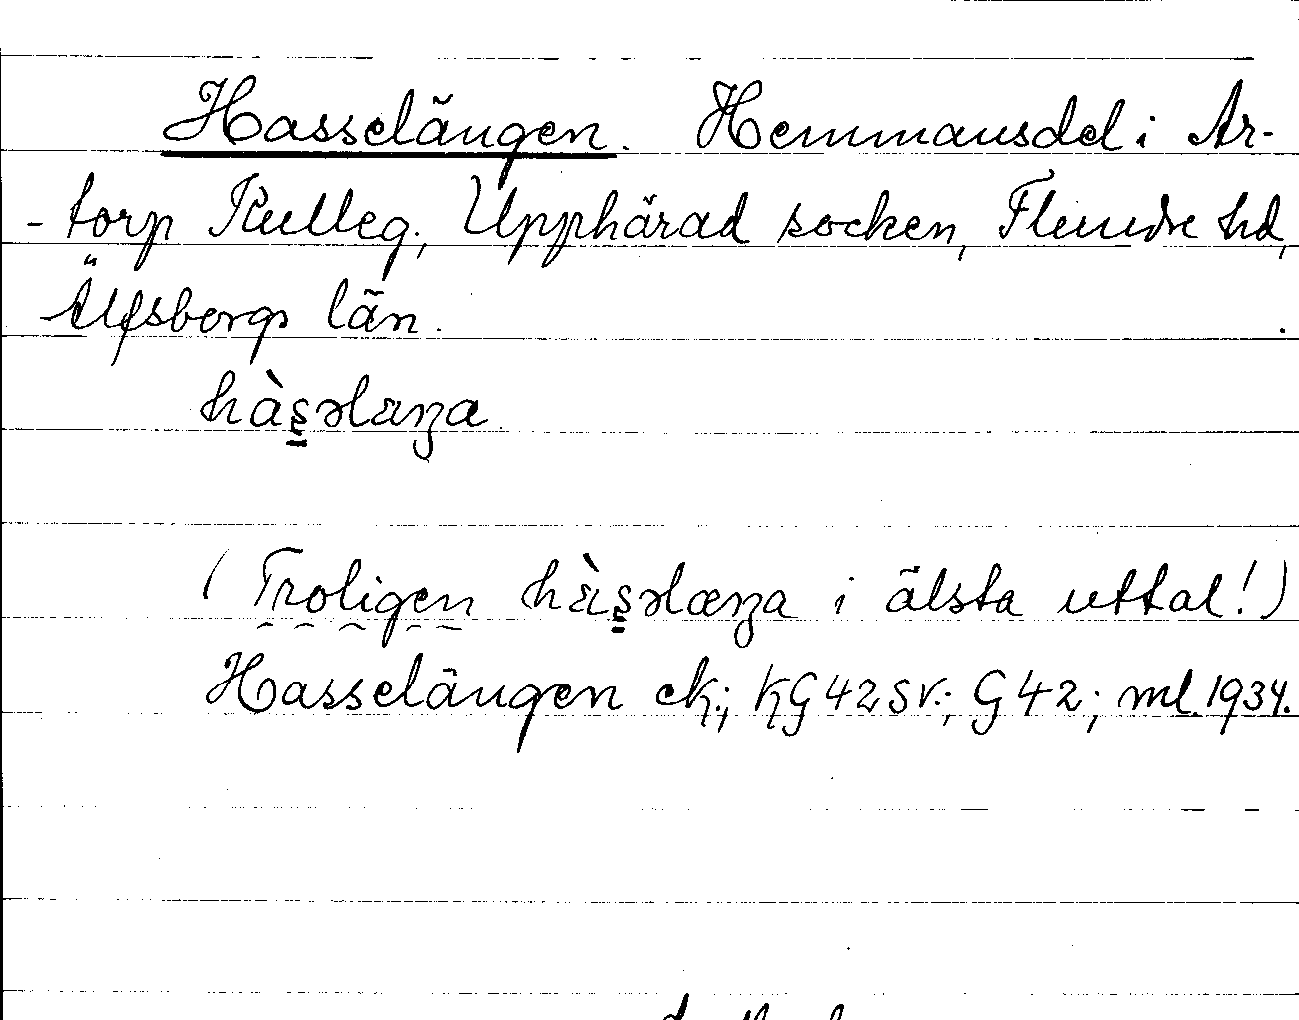 Hasselängen. Hemmansdel i Ar-
- torp Kulleg., Upphärad socken, Flundre hd,
Älfsborgs län.
hàs̳əlæŋa
(Troligen hàs̳əlæŋa i älsta uttal!)
Hasselängen ek.; KG 42 SV.; G 42; ml. 1934.